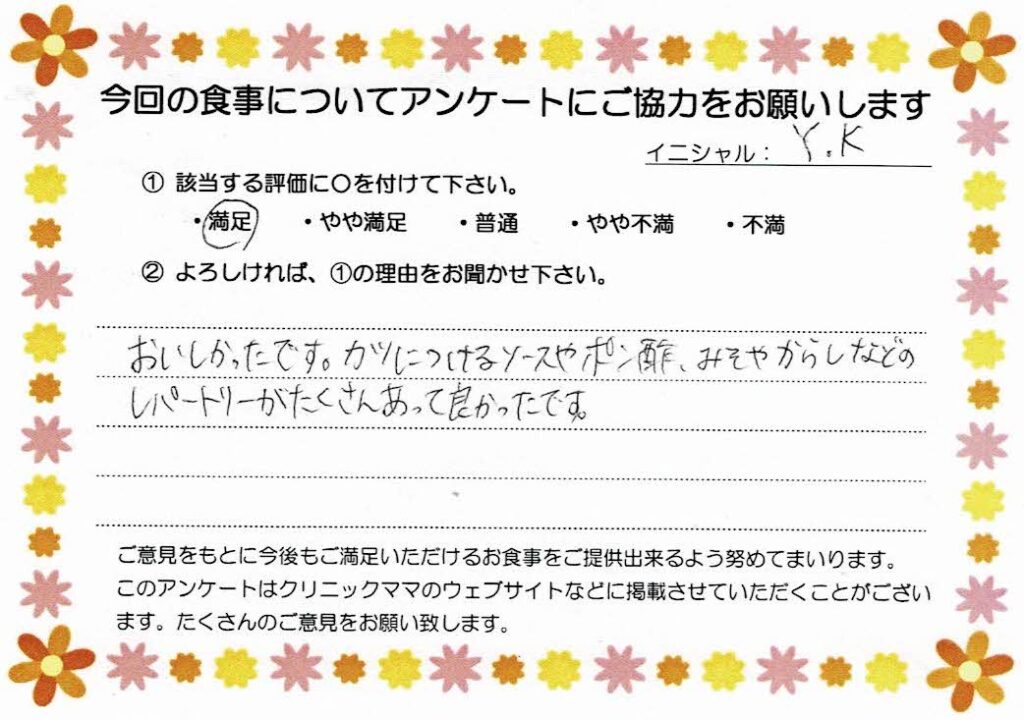 今回の食事についてアンケートにご協力をお願いします
イニシャル： Y.K
① 該当する評価に〇を付けて下さい。
・満足 ・やや満足 ・普通 ・やや不満 ・不満
② よろしければ、①の理由をお聞かせ下さい。
おいしかったです。カツにつけるソースやポン酢、みそやからしなどの
レパートリーがたくさんあって良かったです。
ご意見をもとに今後もご満足いただけるお食事をご提供出来るよう努めてまいります。
このアンケートはクリニックママのウェブサイトなどに掲載させていただくことがござい
ます。たくさんのご意見をお願い致します。